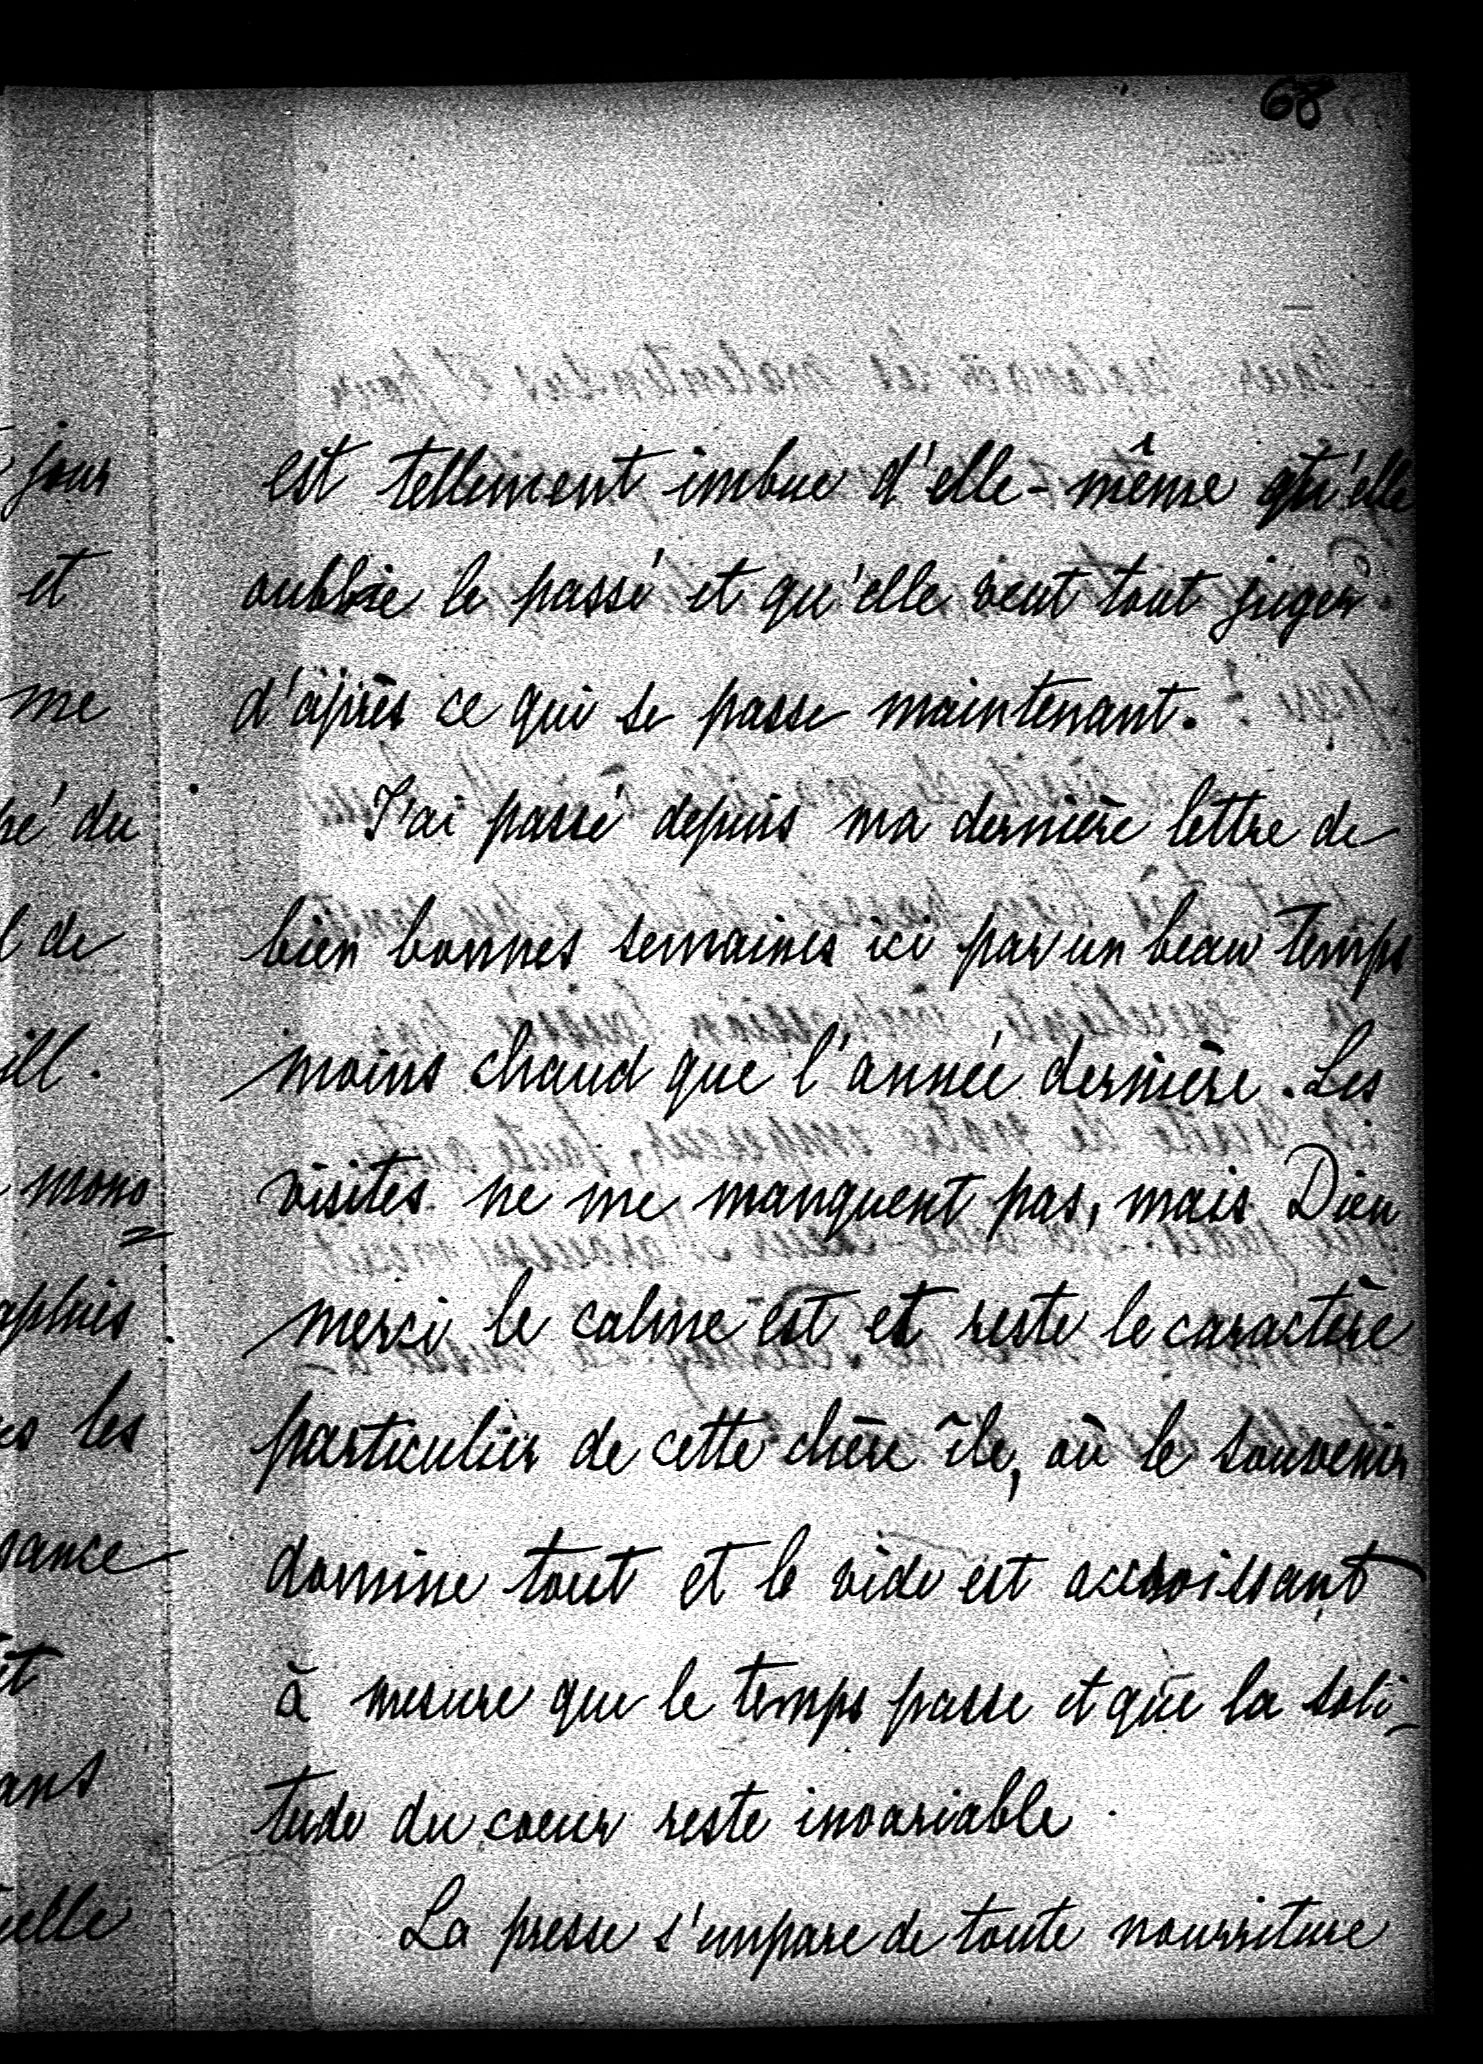 68
est tellement imbue d'elle-même qu'elle
oublie le passé et qu'elle veut tout juger
d'après ce qui se passe maintenant.
J'ai passé depuis ma dernière lettre de
bien bonnes semaines ici par un beau temps
moins chaud que l'année dernière. Les
visites ne me manquent pas, mais Dieu
merci le calme est et reste le caractère
particulier de cette chère île, où le souvenir
domine tout et le vide est accroissant
à mesure que le temps passe et que la soli-
tude du coeur reste invariable.
La presse s'empare de toute nourriture
jour
et
me
du
de
mono
les